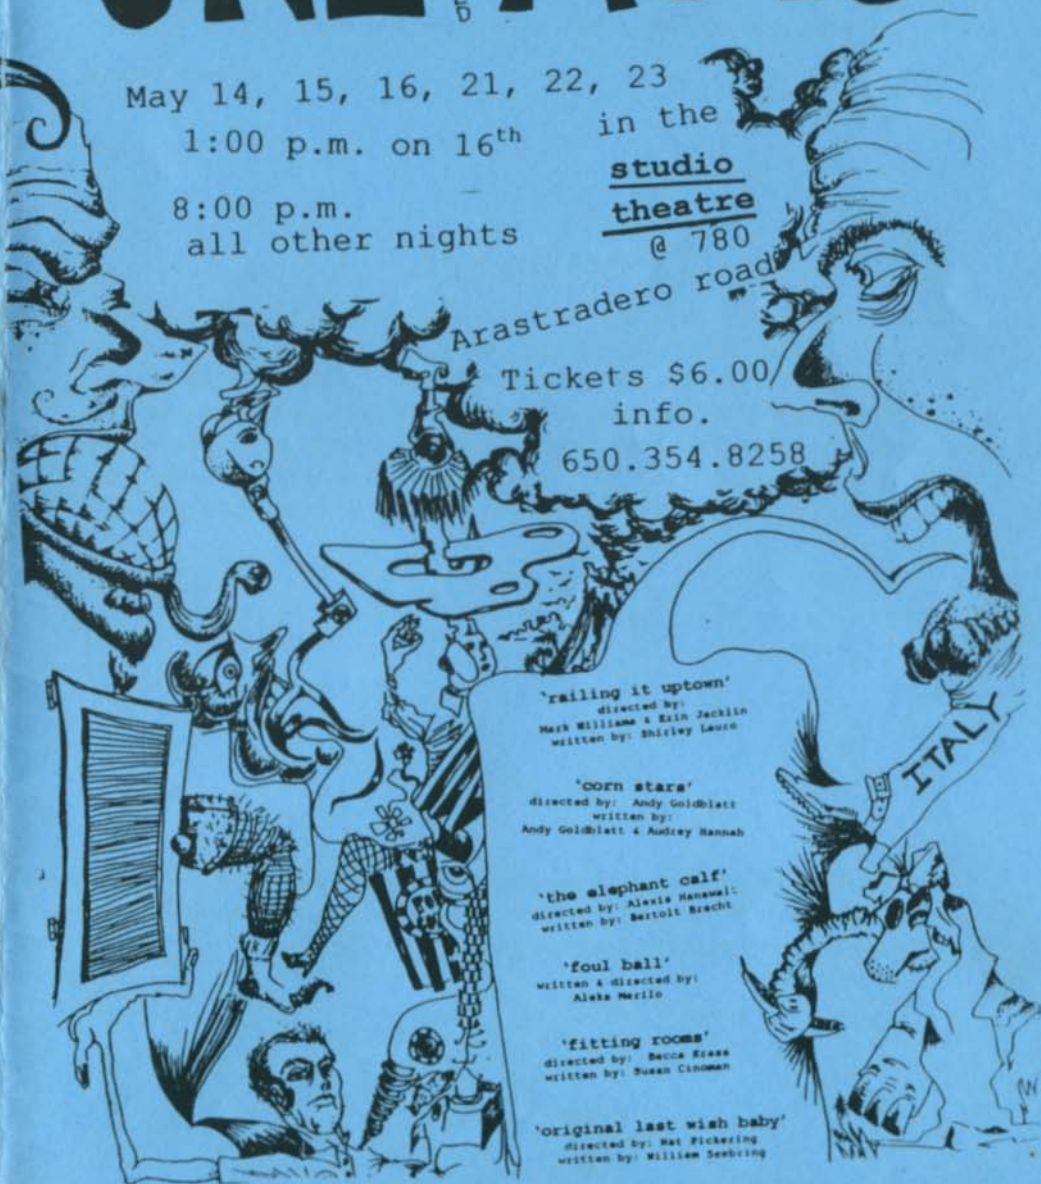 May 14, 15, 16, 21, 22, 23
1:00 p.m. on 16th
8:00 p.m.
all other nights
in the
studio
theatre
@ 780
Arastradero road
Tickets $6.00
info.
650.354.8258
ITALY
'railing it uptown'
directed by:
Mark Williams & Erin Jacklin
written by: Shirley Lauro
'corn stars'
directed by: Andy Goldblatt
written by:
Andy Goldblatt & Audrey Hannah
'the elephant calf'
directed by: Alexis Hanawalt
written by: Bertolt Brecht
'foul ball'
written & directed by:
Aleks Merilo
'fitting rooms'
directed by: Becca
written by: Susan Cinoman
'original last wish baby'
directed by: Mat Pickering
written by: William Seebring